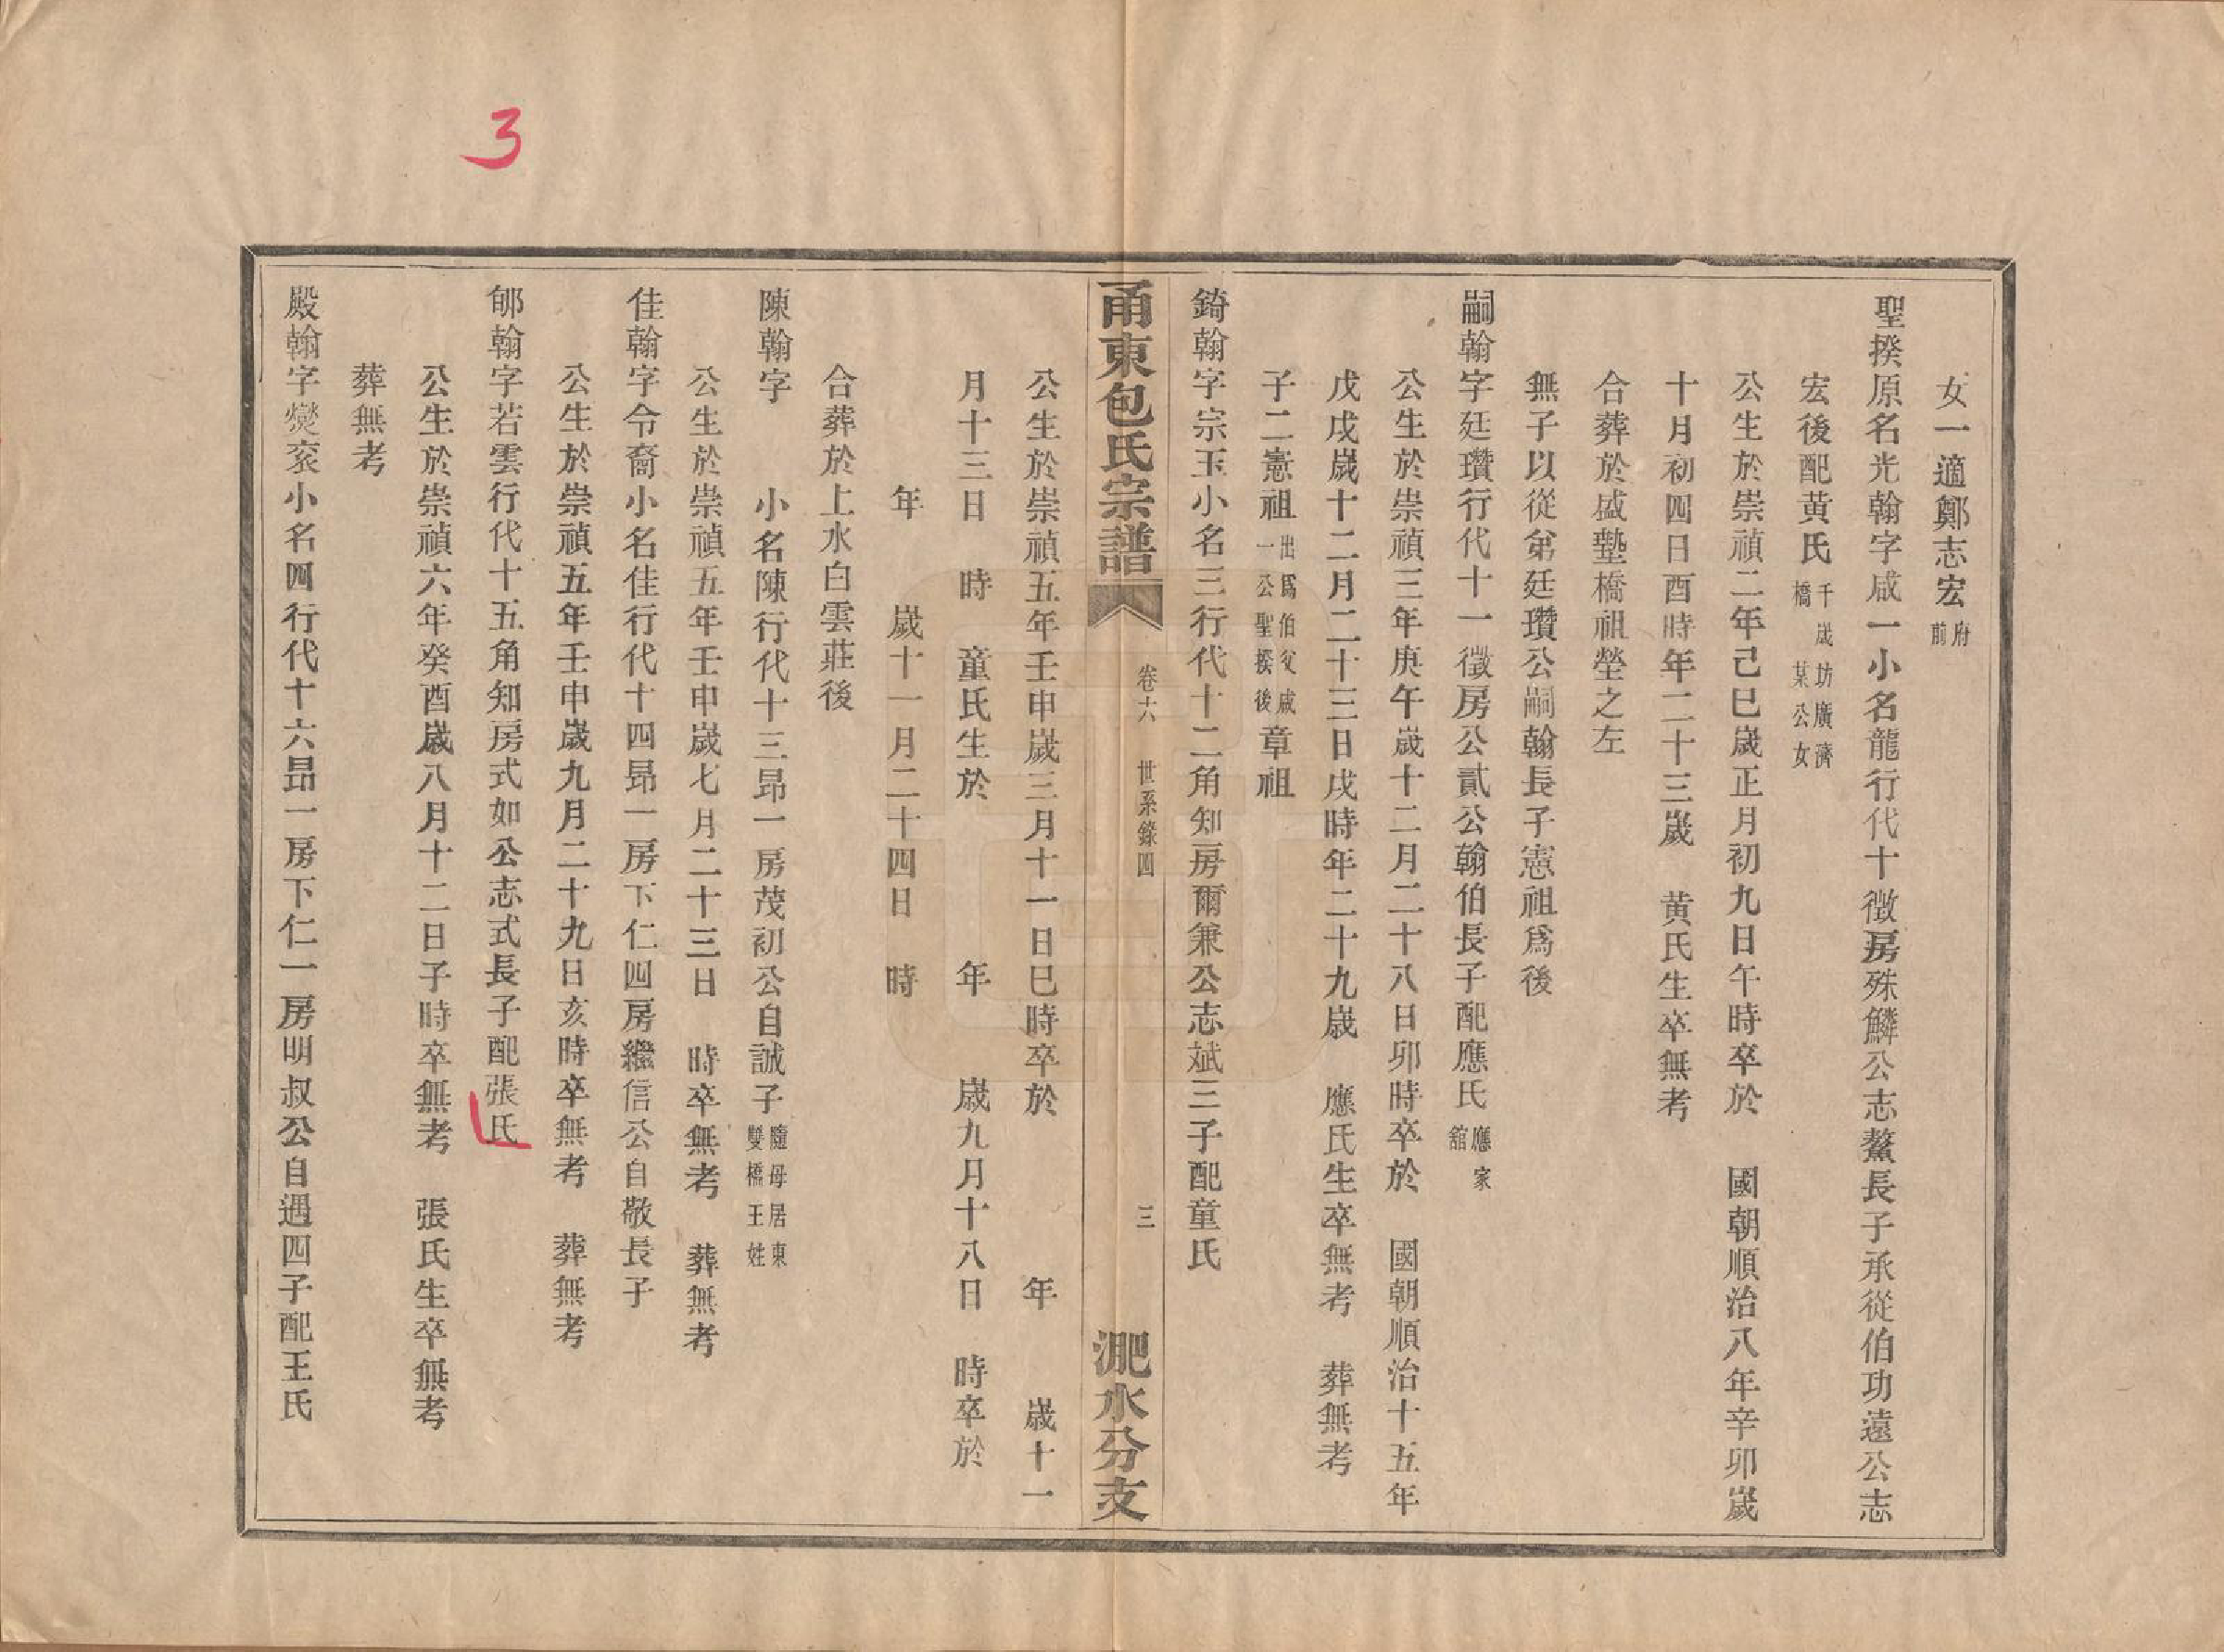 3
女一適鄭志宏府前
聖揆原名光翰字咸一小名龍行代十徵房殊鱗公志鰲長子承從伯功遠公志
宏後配黃氏千歲坊廣濟橋某公女
公生於崇禎二年己巳歲正月初九日午時卒於　國朝順治八年辛卯歲
十月初四日酉時年二十三歲　黃氏生卒無考
合葬於盛墊橋祖塋之左
無子以從弟廷瓚公嗣翰長子憲祖爲後
嗣翰字廷瓚行代十一徵房公貳公翰伯長子配應氏應家舘
公生於崇禎三年庚午歲十二月二十八日卯時卒於　國朝順治十五年
戊戌歲十二月二十三日戌時年二十九歲　應氏生卒無考　葬無考
子二憲祖出爲伯父咸一公聖揆後章祖
錡翰字宗玉小名三行代十二角知房爾兼公志斌三子配童氏
甬東包氏宗譜　卷六　世系錄四　三　淝水分支
公生於崇禎五年壬申歲三月十一日巳時卒於　年　歲十一
月十三日　時　童氏生於　年　歲九月十八日　時卒於
年　歲十一月二十四日　時
合葬於上水白雲莊後
陳翰字　小名陳行代十三昂一房茂初公自誠子隨母居東雙橋王姓
公生於崇禎五年壬申歲七月二十三日　時卒無考　葬無考
佳翰字令裔小名佳行代十四昂一房下仁四房繼信公自敬長子
公生於崇禎五年壬申歲九月二十九日亥時卒無考　葬無考
郇翰字若雲行代十五角知房式如公志式長子配張氏
公生於崇禎六年癸酉歲八月十二日子時卒無考　張氏生卒無考
葬無考
殿翰字爕衮小名四行代十六昂一房下仁一房明叔公自遇四子配王氏